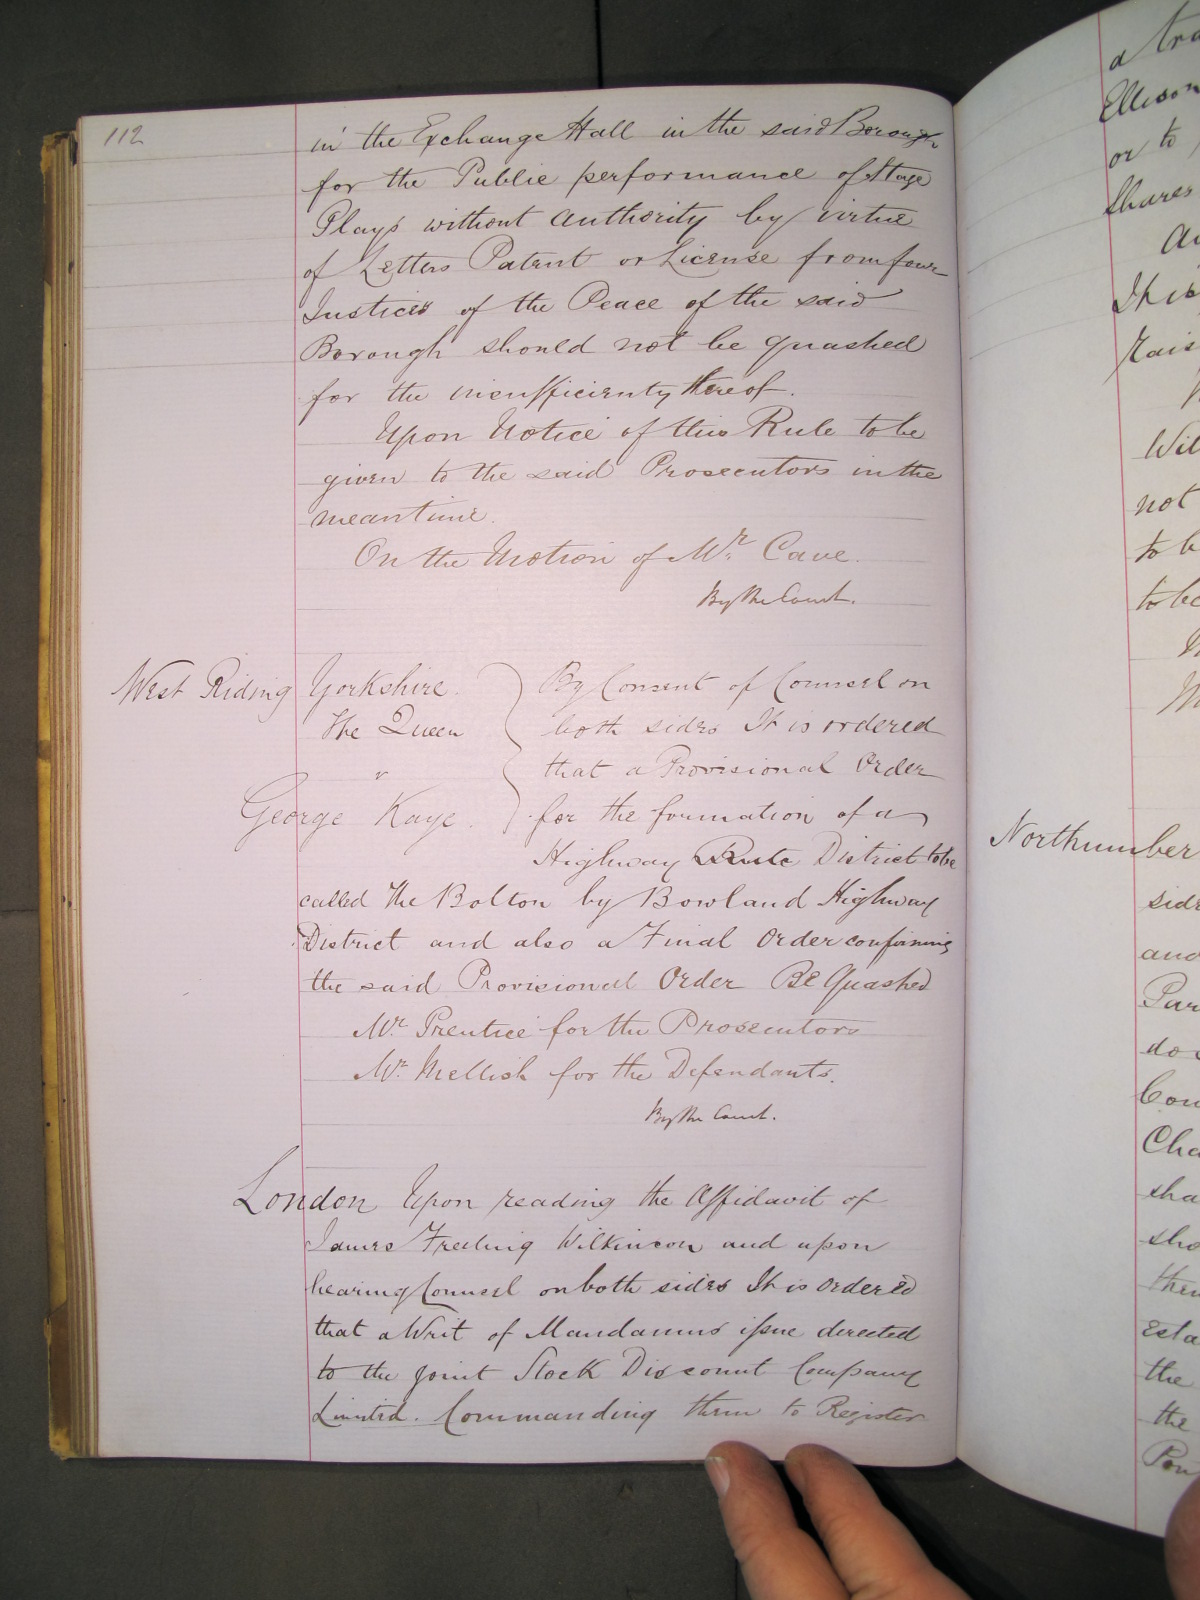 112
in the Exchange Hall in the said Borough
for the Public performance of Stage
Plays without authority by virtue
of Letters Patent or License from four
Justices of the Peace of the said
Borough should not be quashed
for the insufficienty thereof.
Upon Notice of this Rule to be
given to the said Prosecutors in the
meantime.
On the Motion of Mr. Cave.
By the Court.
West Riding Yorkshire. By Consent of Counsel on
The Queen both sides It is ordered
v that a Provisional Order
George Kaye. for the formation of a
Highway District to be
called The Bolton by Bowland Highway
District and also a Final Order confirming
the said Provisional Order Be Quashed
Mr. Prentice for the Prosecutors
Mr. Mellish for the Defendants.
By the Court.
London Upon reading the Affidavit of
James Freeling Wilkinson and upon
hearing Counsel on both sides It is ordered
that a Writ of Mandamus issue directed
to the Joint Stock Discount Company
Limited. Commanding them to Register
a tra
Ellison
or to
shares
It is
Wil
not
to b
to be
Northumber
side
and
Par
do
Cou
Cha
sha
sho
them
Esta
the
the